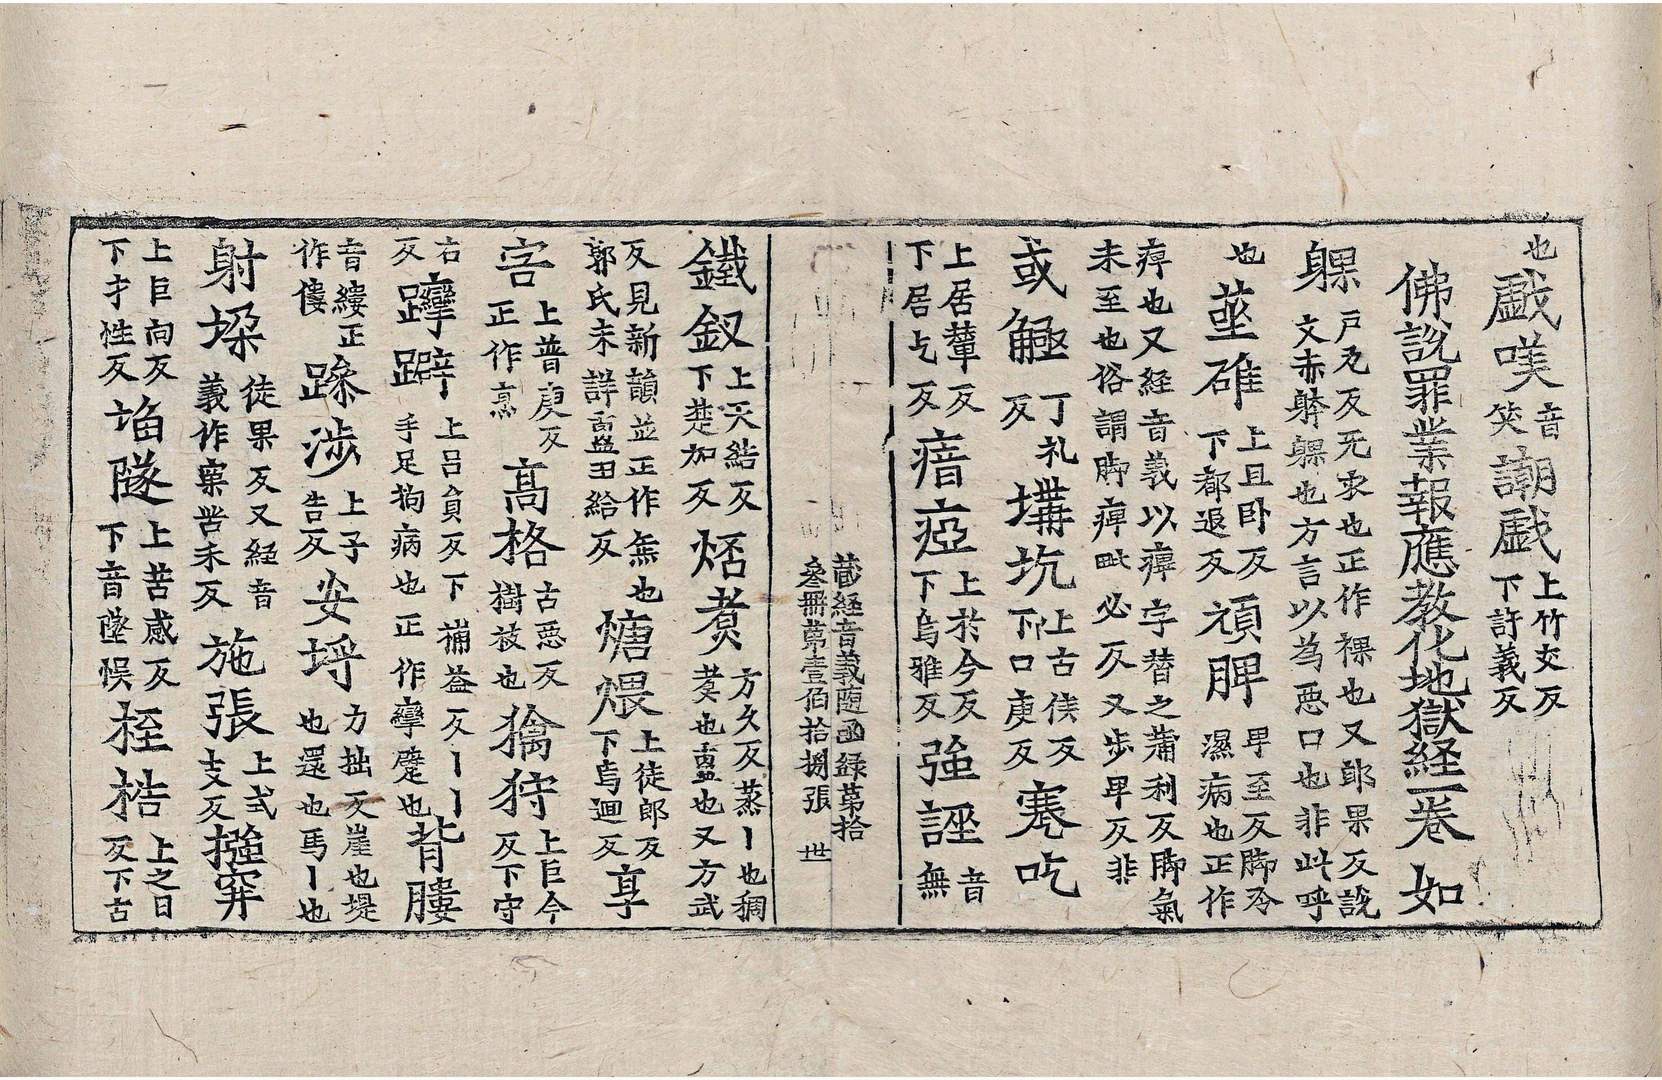 也戲嘆音笑謿戲上竹交反下許義反
佛說罪業報應教化地獄経一卷 如
躶戶瓦反旡衣也正作裸也又郎果反說文赤躰躶也方言以為惡口也非此呼
也莝碓上且卧反下都退反頑脾畀至反脚冷濕病也正作
痺也又経音義以痺字替之蒲利反脚氣未至也俗謂脚痺毗必反又步畀反非
或䑛丁礼反㙤坑上古侯反下口庚反蹇吃
上居輦反下居乞反瘖瘂上於今反下烏雅反強誣音無
藏経音義随函録第拾
叁冊第壹伯拾捌張 世
鐵釵上天結反下楚加反烰煑方久反蒸丨也稠䔾也䀇也又方武
反見新韻並正作缹也郭氏未詳䀇田給反煻煨上徒郎反下烏迴反亯
㝓上普庚反正作烹髙格古惡反樹枝也㩒狩上巨今反下守
右反躃躃上呂貟反下補益反丨丨手足拘病也正作攣躄也背膢
音縷正作僂躁涉上子告反安埒力拙反崖也堤也還也馬丨也
射垛徒果反又経音義作㮼苦未反施張上式支反搥穽
上巨向反下才性反䧟隧上苦感反下音墜悞桎梏上之日反下古